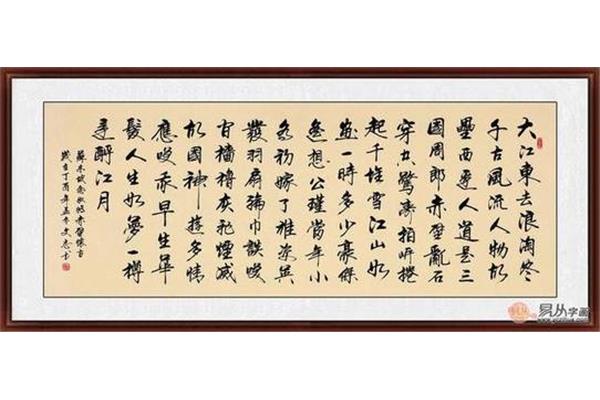 大江東去浪淘尽
千古風流人物故
壘西邊人道是三
國周郎赤壁亂石
穿空驚濤拍岸捲
起千堆雪江山如
畫一時多少豪傑
遥想公瑾當年小
喬初嫁了雄姿英
發羽扇綸巾談笑
間檣櫓灰飛煙滅
故國神遊多情
應笑我早生華
髮人生如夢一樽
還酹江月
蘇東坡念奴嬌赤壁懷古
歲在丁酉年孟冬文志書
易从字画